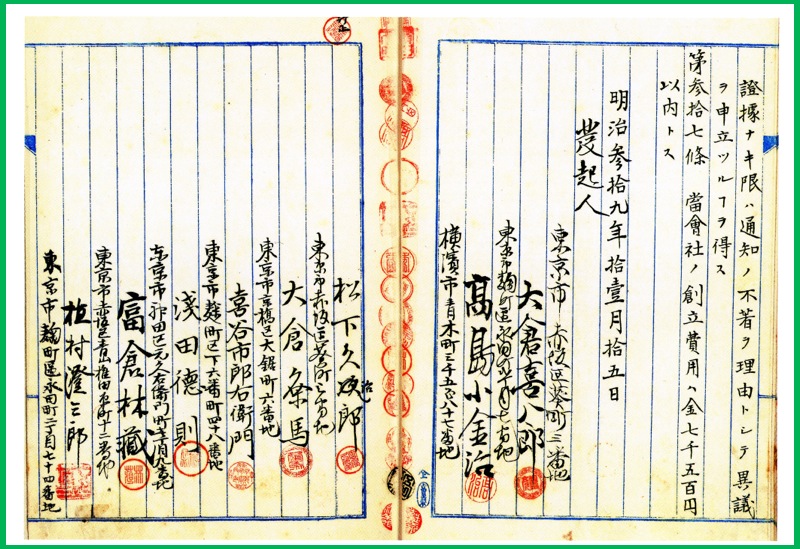 證據ナキ限ハ通知ノ不着ヲ理由トシテ異議
ヲ申立ツルヿヲ得ス
第参拾七條 當會社ノ創立費用ハ金七千五百円
以内トス
明治参拾九年拾壹月拾五日
發起人
東京市赤坂區葵町三番地
大倉喜八郎
東京市麹町區永田町
高島小金治
横濱市青木町三千五百八十七番地
松下久治郎
東京市赤坂區葵町三番地
大倉粂馬
東京市京橋區大鋸町六番地
喜谷市郎右衛門
東京市麹町區下六番町四十八番地
淺田德則
東京市神田區元久右衛門町
富倉林藏
東京市赤坂區青山権田原町十二番地
植村澄三郎
東京市麹町區永田町二丁目七十四番地